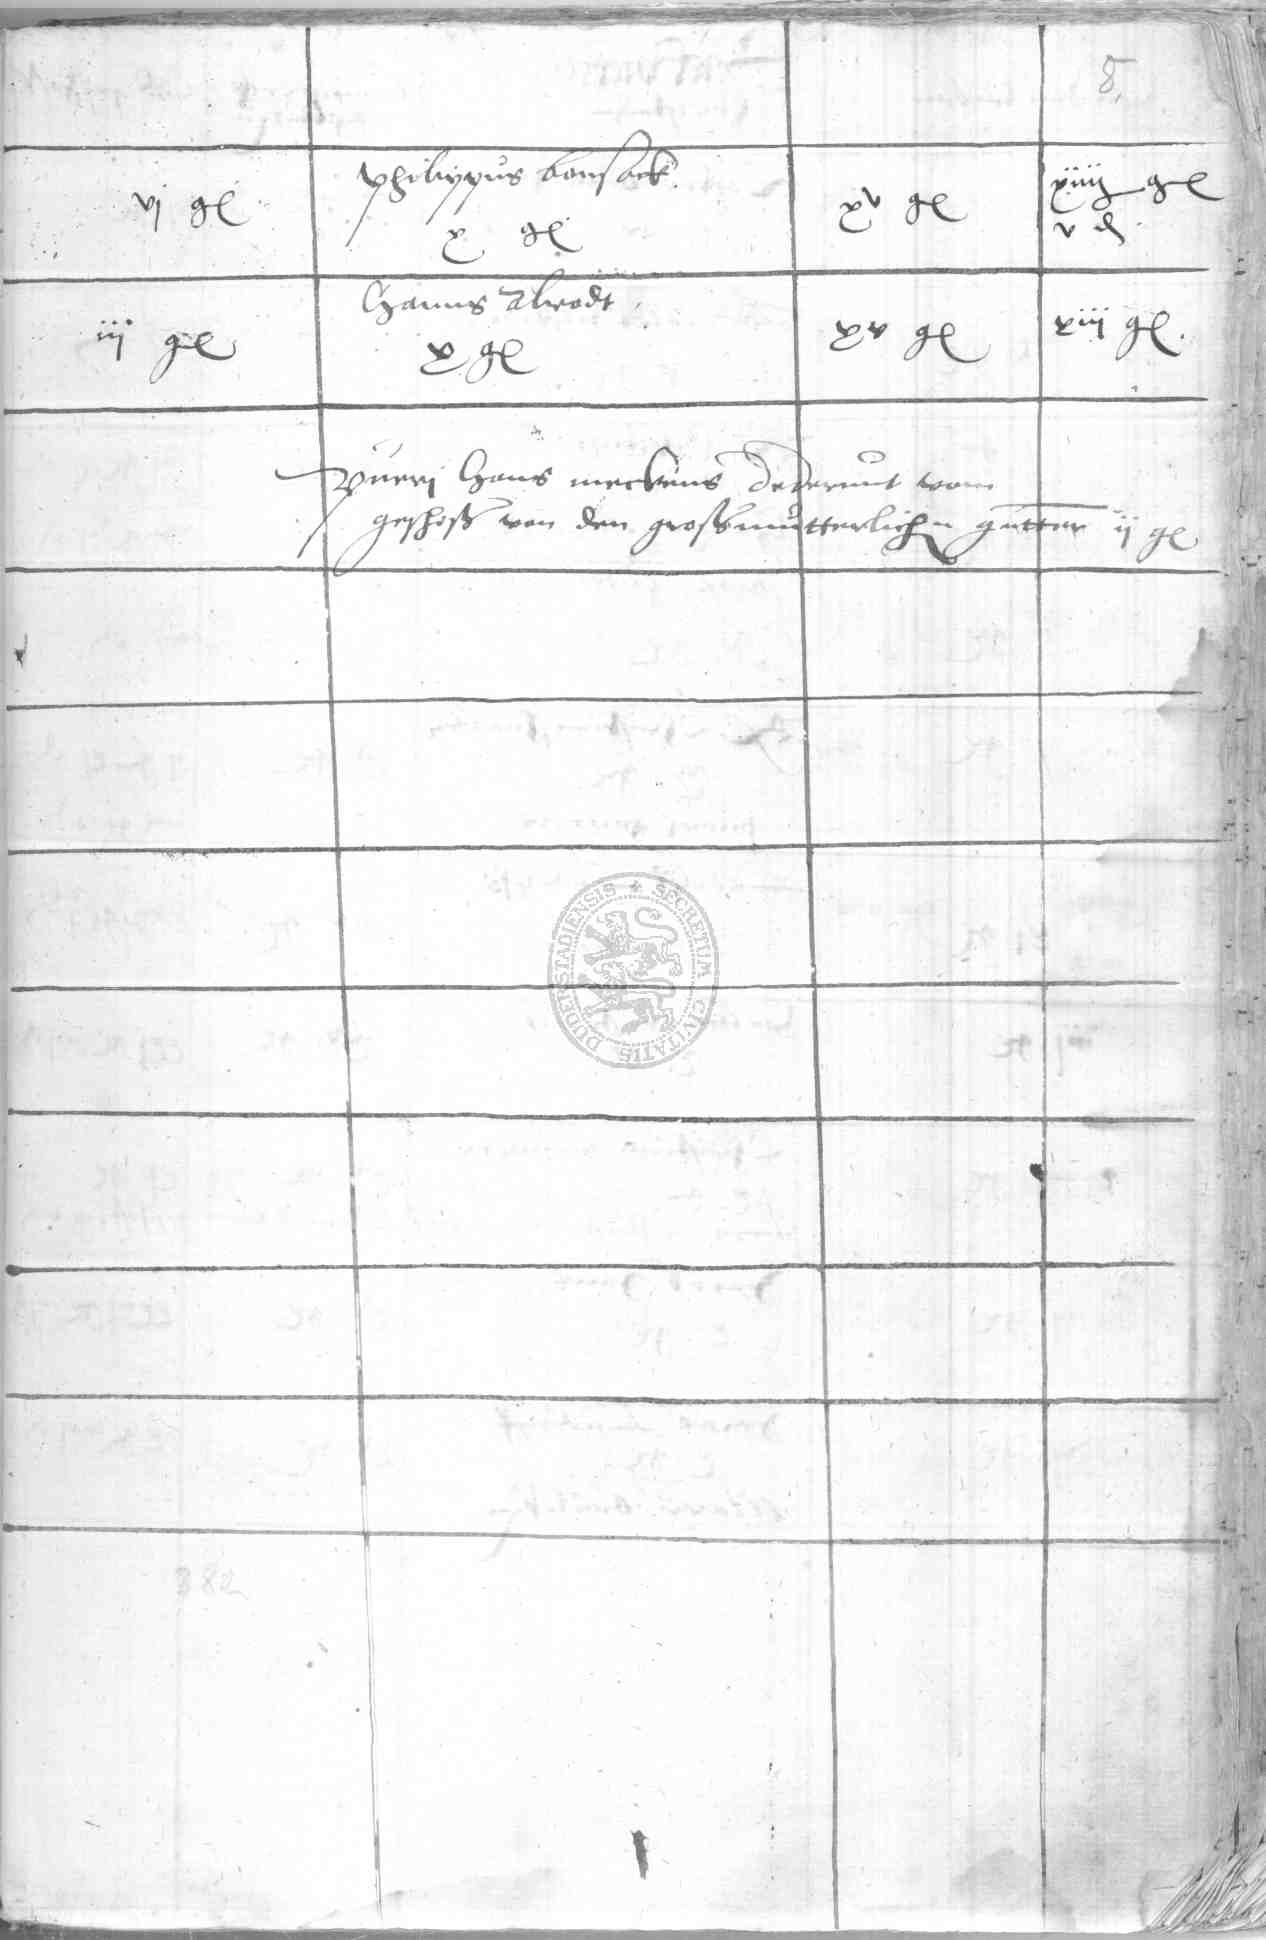 8
vj gl
philippus bonsack
x gl
xv gl
xiiij gl
v d
iij gl
Hanns
x gl
xv gl
xiij gl
Pueri Hans meckens dederunt vom
geschoß von den grossmutterlichen gutter ij gl
SECRETUM CIVITATIS DUDERSTADIENSIS
382